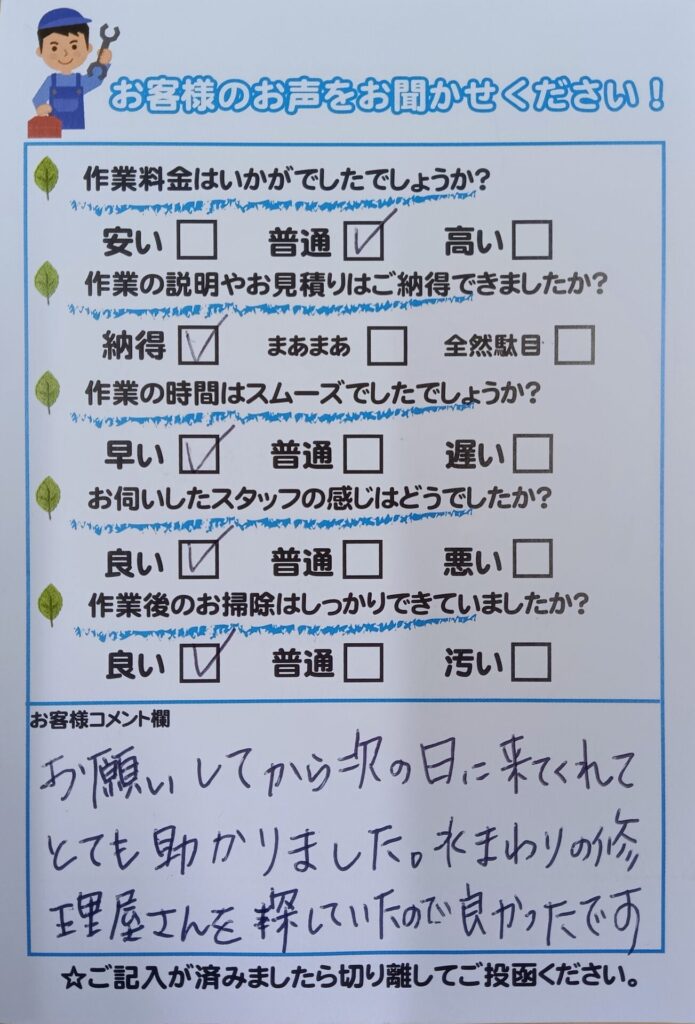 お客様のお声をお聞かせください！
作業料金はいかがでしたでしょうか？
安い □ 普通 ☑ 高い □
作業の説明やお見積りはご納得できましたか？
納得 ☑ まあまあ □ 全然駄目 □
作業の時間はスムーズでしたでしょうか？
早い ☑ 普通 □ 遅い □
お伺いしたスタッフの感じはどうでしたか？
良い ☑ 普通 □ 悪い □
作業後のお掃除はしっかりできていましたか？
良い ☑ 普通 □ 汚い □
お客様コメント欄
お願いしてから次の日に来てくれて
とても助かりました。水まわりの修
理屋さんを探していたので良かったです
☆ご記入が済みましたら切り離してご投函ください。